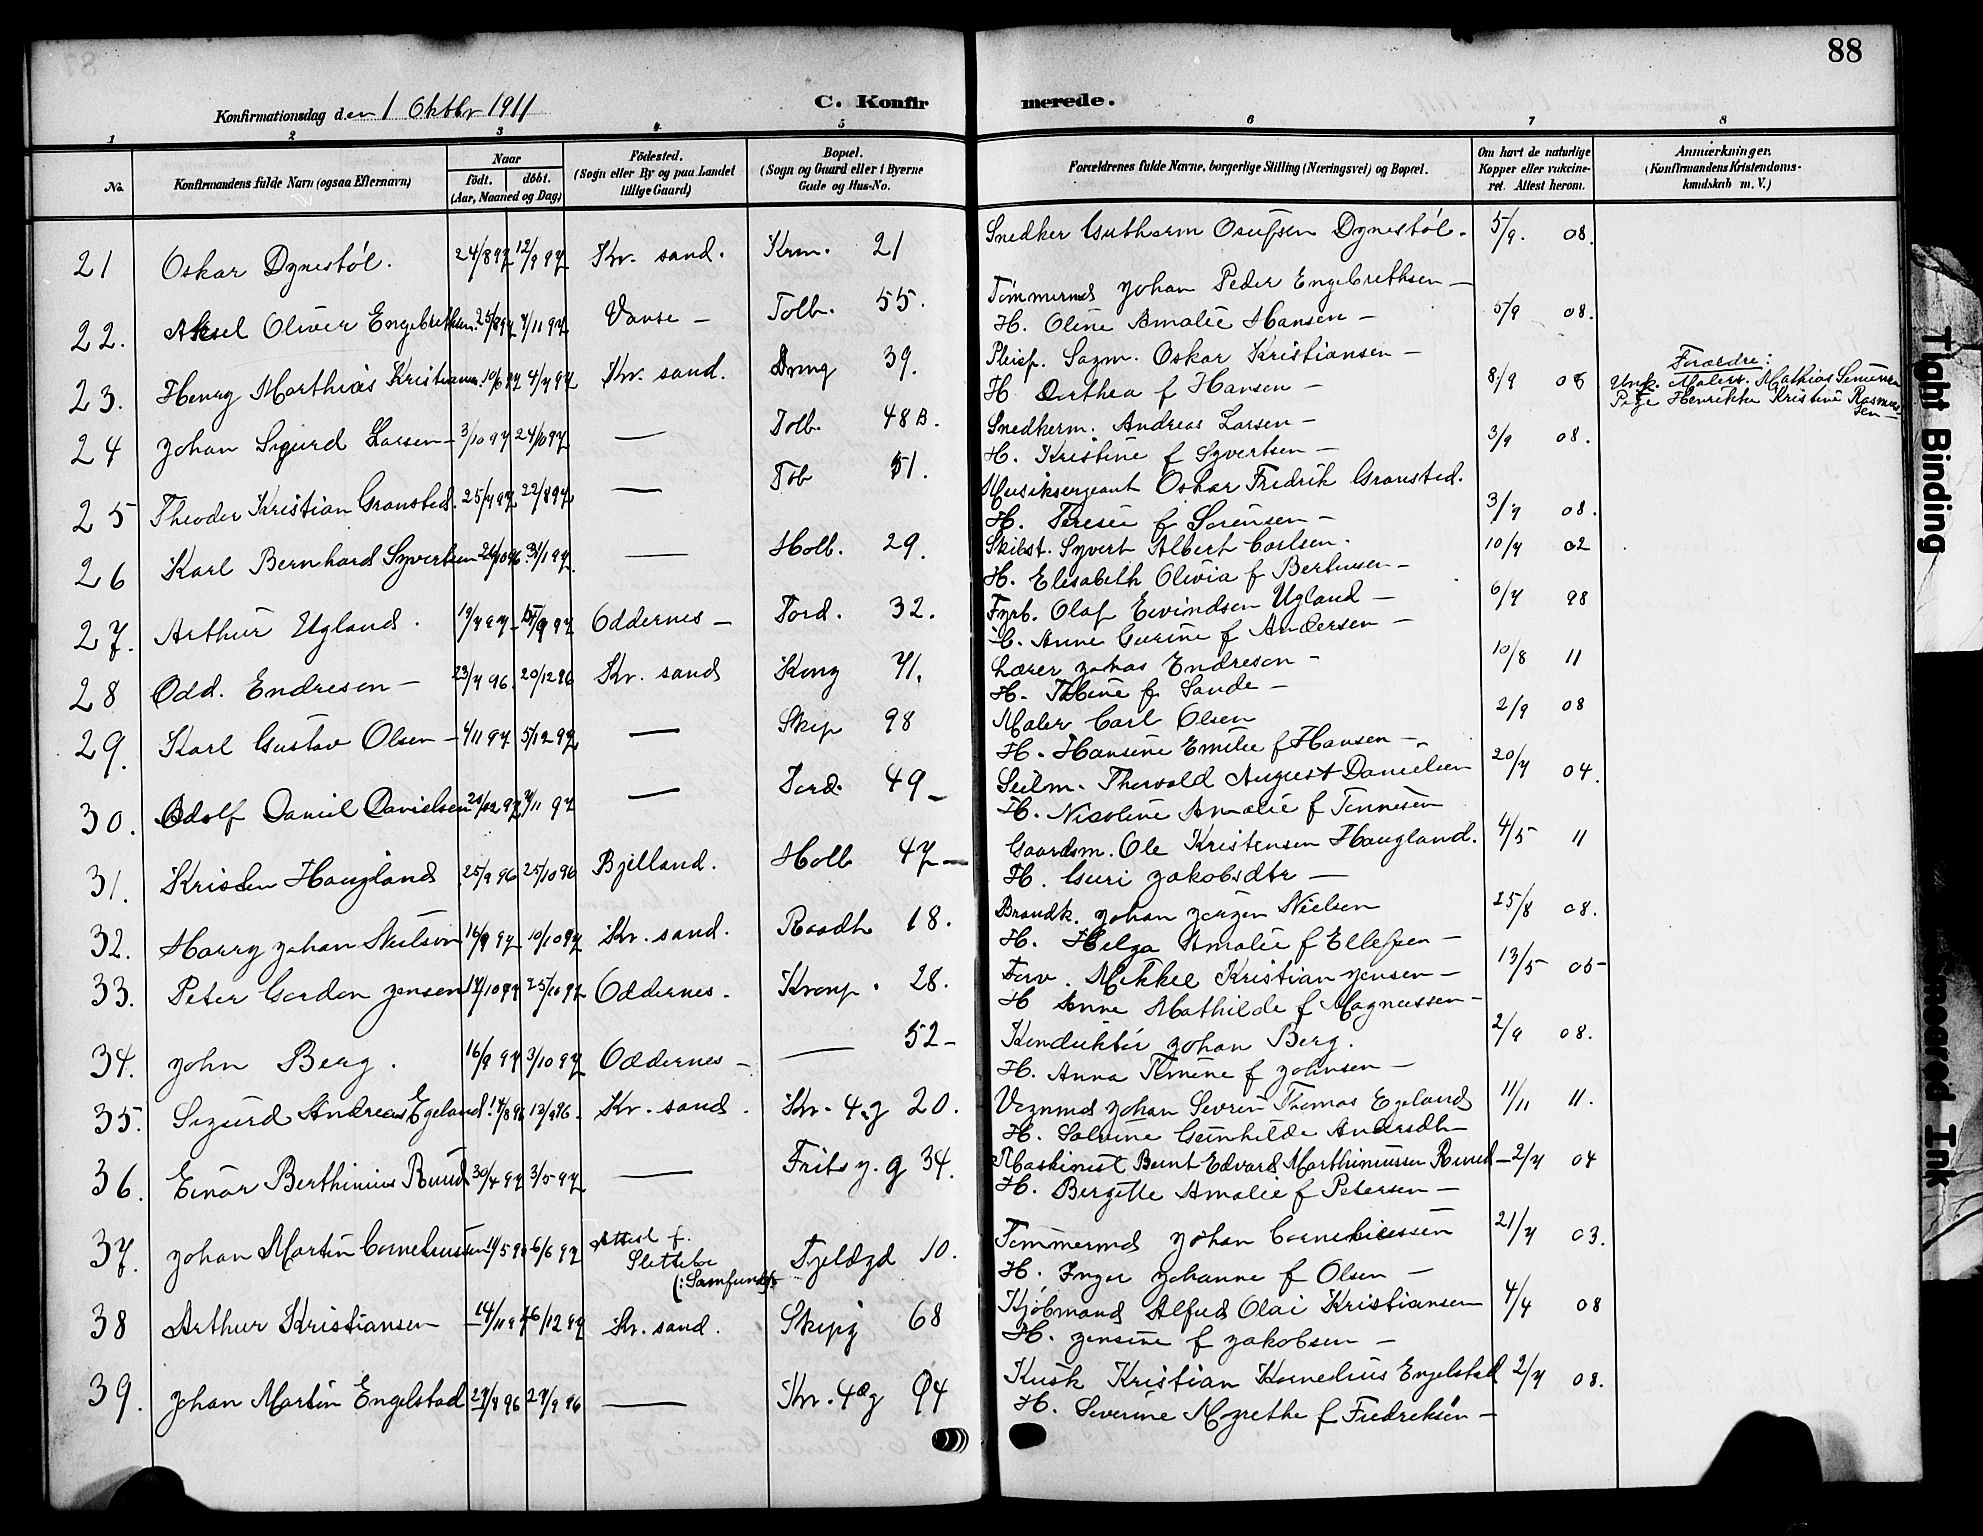 88
Konfirmationsdag den 1 Oktbr 1911
C. Konfirmerede.
1 2 3 4 5 6 7 8
No.
Konfirmandens fulde Navn (ogsaa Efternavn)
Naar
født. døbt.
(Aar, Maaned og Dag)
Fødested.
(Sogn eller By og paa Landet
tillige Gaard)
Bopæl.
(Sogn og Gaard eller i Byerne
Gade og Hus-No.
Forældrenes fulde Navne, borgerlige Stilling (Næringsvei) og Bopæl.
Om havt de naturlige
Kopper eller vaccine-
ret. Attest herom.
Anmærkninger,
(Konfirmandens Kristendoms-
kundskab m. V.)
21 Oskar Dynestøl. 24/8 97 12/9 97 Kr. sand. Krm. 21 Snedker Guthorm Osufsen Dynestøl. 5/9. 08.
22. Aksel Oliver Engebrethsen 25/8 97 7/11 97 Vanse - Tolb. 55. Tømmermd Johan Peder Engebrethsen - 5/9 08.
H. Oline Amalie Hansen -
23. Henry Marthias Kristiansen 10/6 97 4/7 97 Kr. sand. Drng 39. Pleief. Sagm. Oskar Kristiansen - 8/9 08
H Dorthea f Hansen -
Forældre:
Unk. Malers. Mathias Simonsen
Pige Henrikke Kristine Rasmus-
sen -
24 Johan Sigurd Larsen - 3/10 97 24/10 97 — Tolb. 48 B. Snedkerm. Andreas Larsen - 3/9 08.
H. Kristine f Syvertsen -
25 Theodor Kristian Gransted. 25/7 97 22/8 97 — Tob 51. Musiksergeant Oskar Fredrik Gransted. 3/9 08.
H. Terese f Sørensen -
26 Karl Bernhard Syvertsen 31/1 97. — Holb. 29. Skibst. Syvert Albert Carlsen. 10/7 02
H. Elisabeth Olivia f Berthusen -
27. Arthur Ugland. 19/7 97 Oddernes - Tord. 32. Fyrb. Olaf Eivindsen Ugland - 6/7 98
H. Anne Gurine f Andersen -
28 Odd. Endresen - 23/7 96. 20/12 96 Kr. sand Kong 71. Lærer Johas Endresen - 10/8 11
H. Tobine f Sande -
29. Karl Gustav Olsen - 4/11 97 5/12 97 — Skip 98 Maler Carl Olsen 2/9 08
H. Hansine Emilie f Hansen -
30. Adolf Daniel Danielsen — Tord. 49 - Seilm. Thorvald August Danielsen 20/7 04.
H. Nicoline Amalie f Tønnesen
31. Kristen Haugland 25/9 96 25/10 96 Bjelland. Holb 47 - Gaardsm. Ole Kristensen Haugland. 4/5 11
H. Guri Jakobsdtr -
32. Harry Johan Nielsen 16/9 97 10/10 97 Kr. sand. Raadh 18. Brandk. Johan Jørgen Nielsen 25/8 08.
H. Helga Amalie f Ellefsen -
33. Peter Gordon Jensen 17/10 97 Oddernes. Kronp. 28. Forv. Mikkel Kristian Jensen - 13/5 05
H Anne Mathilde f Magnussen -
34. John Berg. 16/9 97 3/10 97 Oddernes - — 52 - Konduktør Johan Berg. 2/9 08.
H. Anna Tomine f Johnsen -
35. Sigurd Andreas Egeland. 17/8 96 13/9 96. Kr. sand. Kr. 4. g 20. Vognmd Johan Severin Thomas Egeland 11/11 11.
H. Salvine Gunhilde Andersdtr
36. Einar Berthinius Ruud 30/4 97 3/5 97 — Frits J. g 34. Maskinist Bernt Edvard Marthiniussen Ruud - 2/7 04
H. Bergitte Amalie f Petersen -
37. Johan Martin Corneliussen 11/5 97 6/6 97 Attest f.
Slettebø
(: Samfundsf. Fjeldgd 10. Tømmermd Johan Corneliussen 21/7 03.
H. Inger Johanne f Olsen -
38 Arthur Kristiansen 14/11 97 26/12 97 Kr. sand. Skipg 68 Kjøbmand Alfred Olai Kristiansen 4/7 08
H. Jensine f Jakobsen -
39. Johan Martin Engelstad 27/8 96 27/9 96 — Kr. 4de g 94 Kusk Kristian Kornelius Engelstad 2/7 08.
H. Severine Mgrethe f Fredriksen -
Tight Binding
Smeared Ink